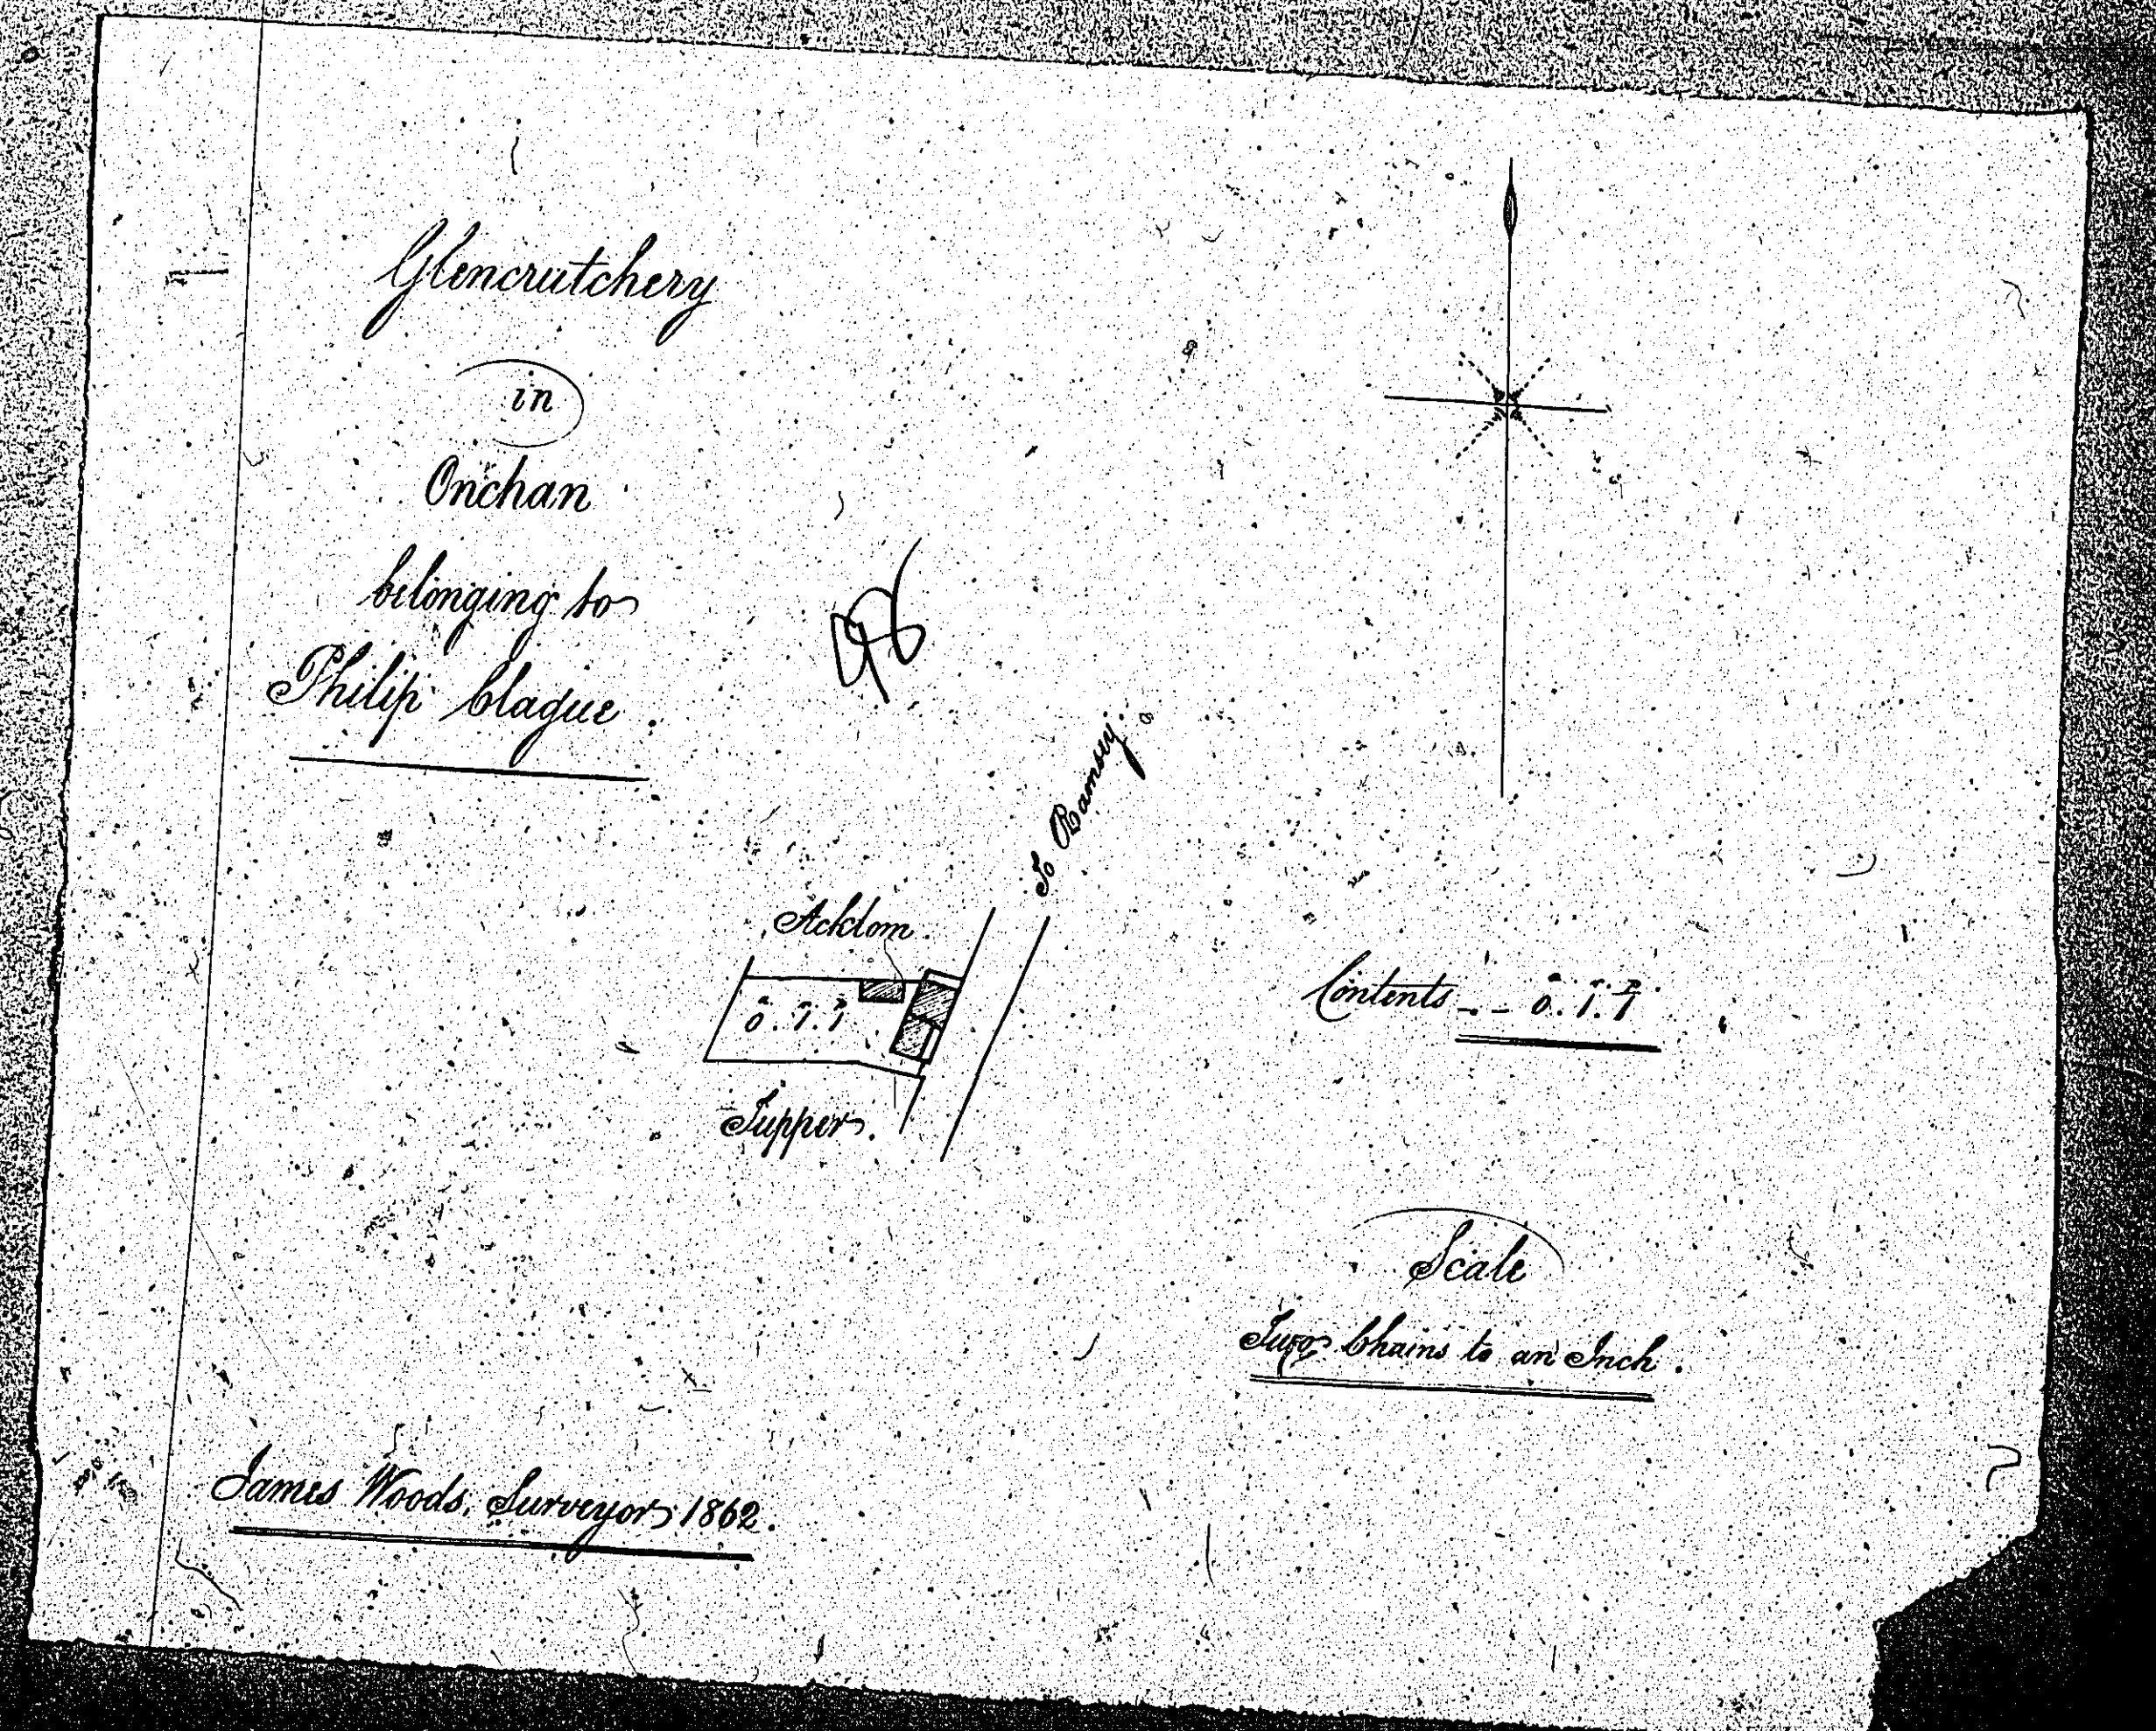 Glencrutchery
in
Onchan
belonging to
Philip Clague.
98
To Ramsey.
Acklom.
0. 1. 1
Tupper.
Contents - - 0. 1. 1
Scale
Two Chains to an Inch.
James Woods, Surveyor 1862.